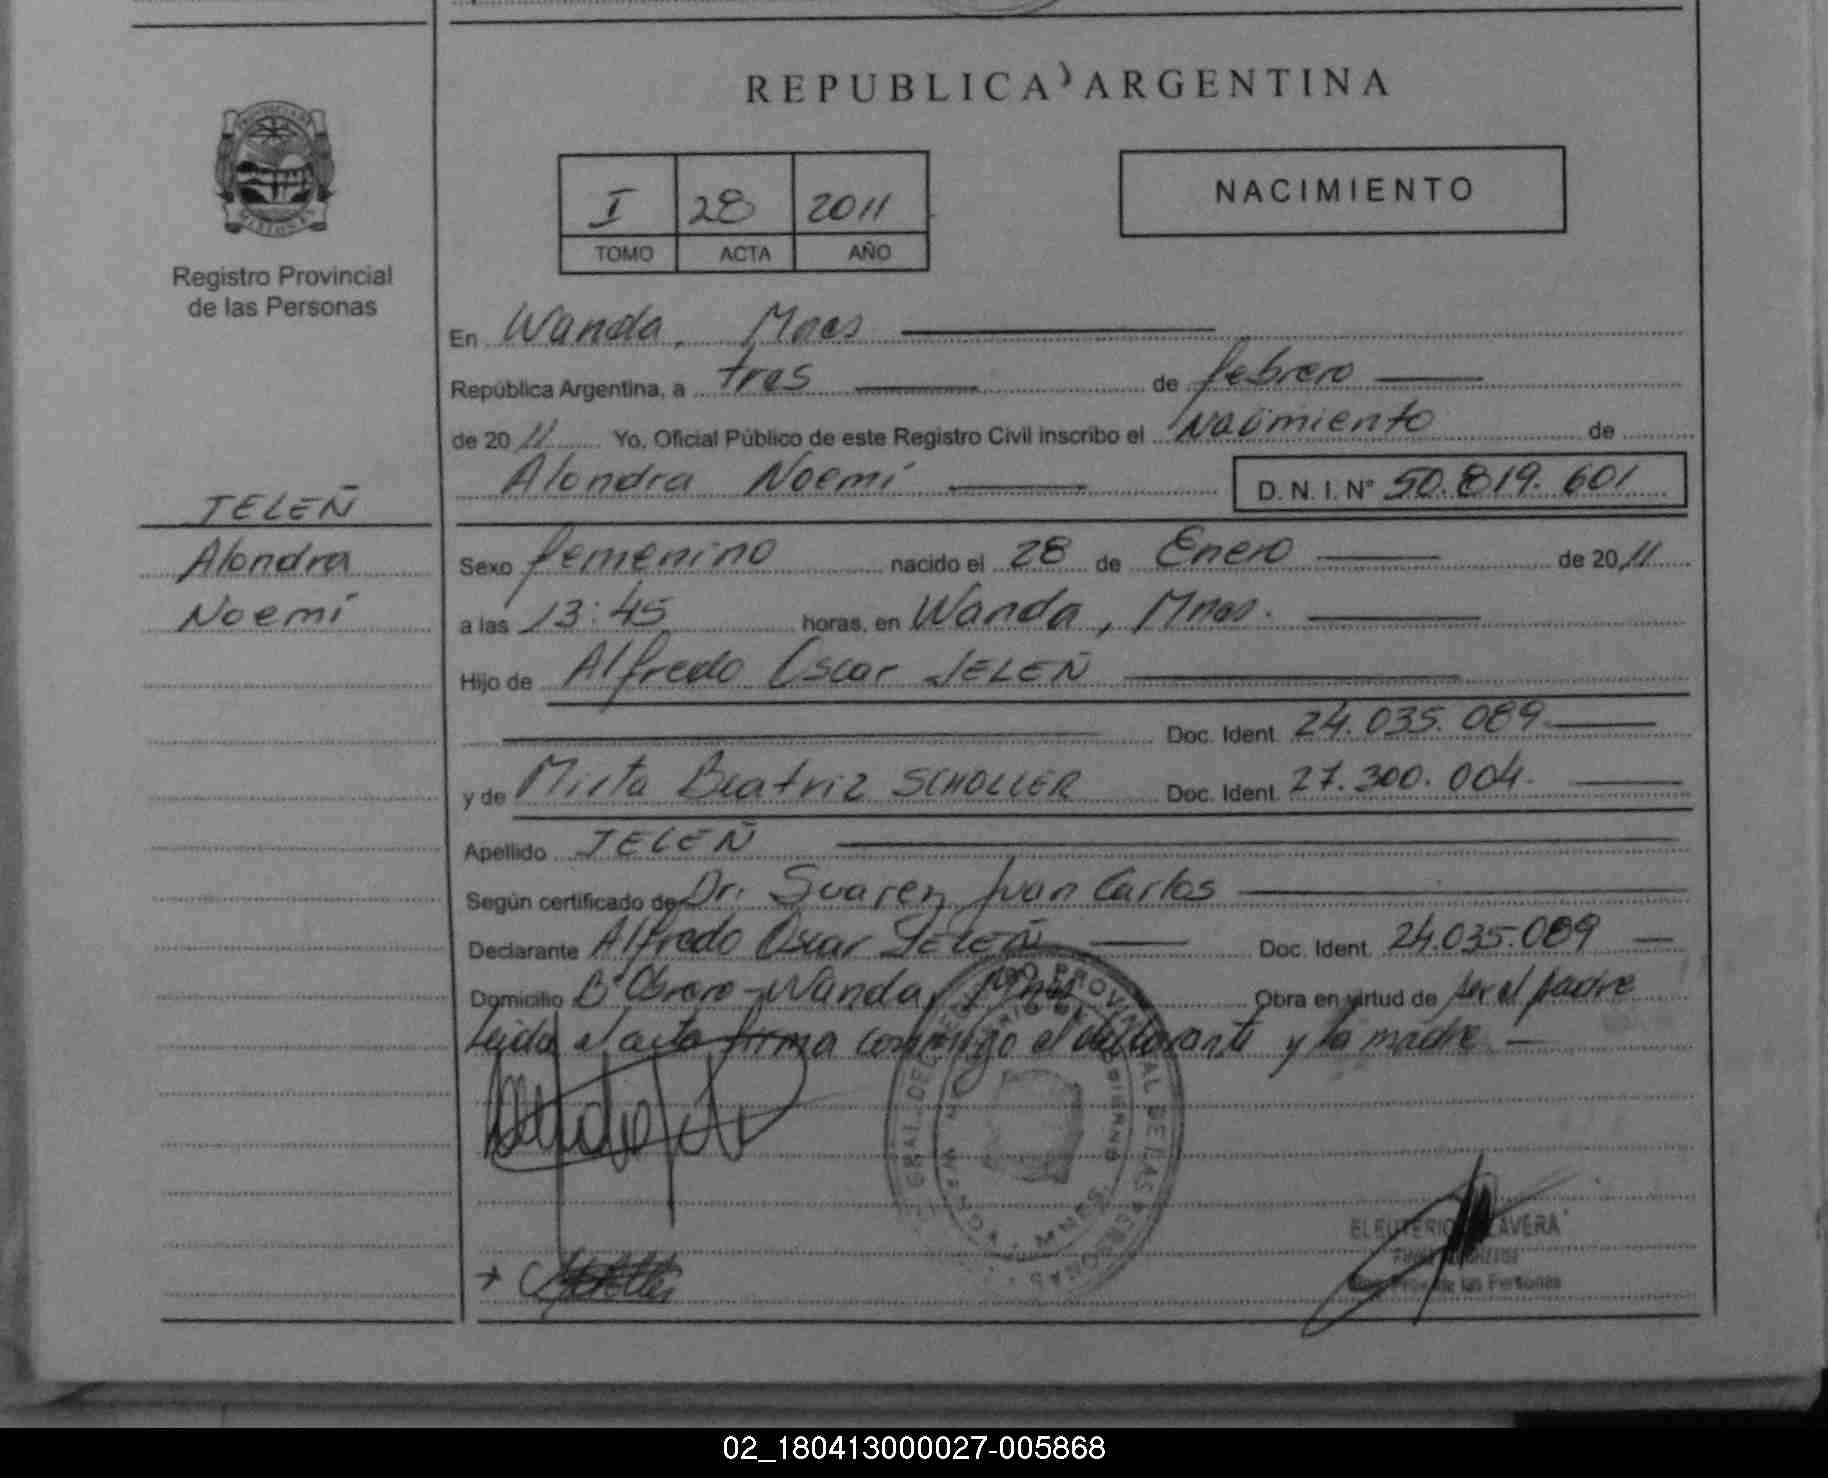 REPUBLICA ARGENTINA
MISIONES
Registro Provincial
de las Personas
I 28 2011
TOMO ACTA AÑO
NACIMIENTO
En Wanda, Mnes
República Argentina, a tres de febrero
de 2011 Yo, Oficial Público de este Registro Civil inscribo el Nacimiento de
Alondra Noemí D. N. I. N° 50.819.601
JELEÑ
Alondra
Noemí
Sexo femenino nacido el 28 de Enero de 2011
a las 13:45 horas, en Wanda, Mnes.
Hijo de Alfredo Oscar JELEÑ
Doc. Ident. 24.035.089
y de Mirta Beatriz SCHOLLER Doc. Ident. 27.300.004
Apellido JELEÑ
Según certificado de Dr. Suarez Juan Carlos
Declarante Alfredo Oscar JELEÑ Doc. Ident. 24.035.089
Domicilio B° Obrero - Wanda, Mnes Obra en virtud de ser el padre
Leída el acta firma conmigo el declarante y la madre
ELEUTERIO
de las Personas
02_180413000027-005868